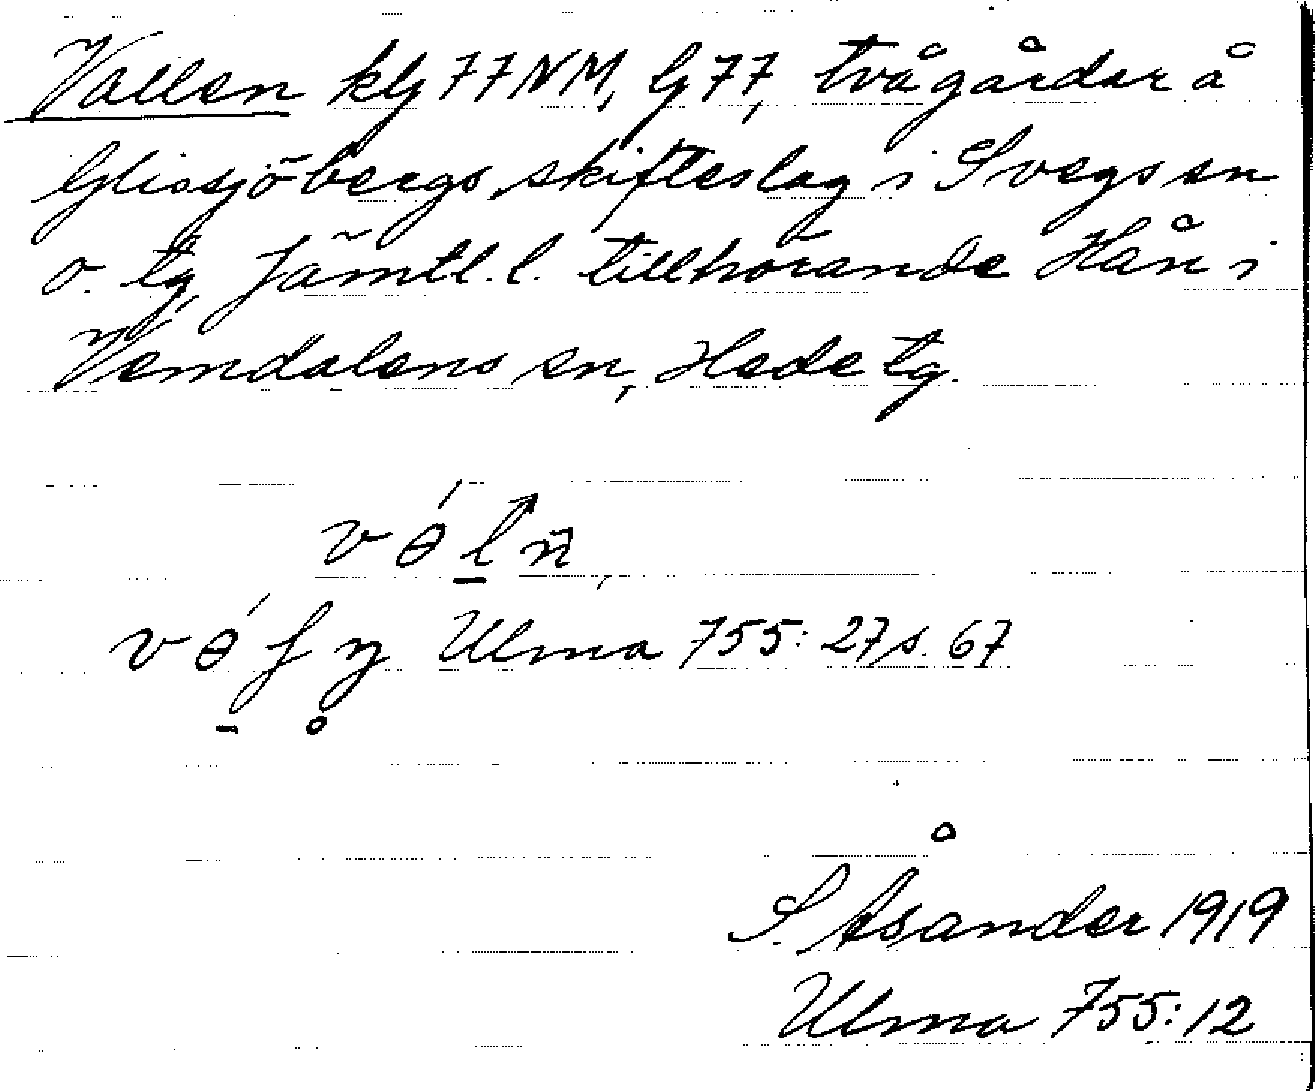 Vallen klg 77 NM, G 77, två gårdar å
Glissjöbergs skifteslag i Svegs sn
o. tg, Jämtl. l. tillhörande Hån i
Vemdalens sn, Hede tg.
Ulma 755: 27 s. 67
S. Åsander 1919
Ulma 755:12